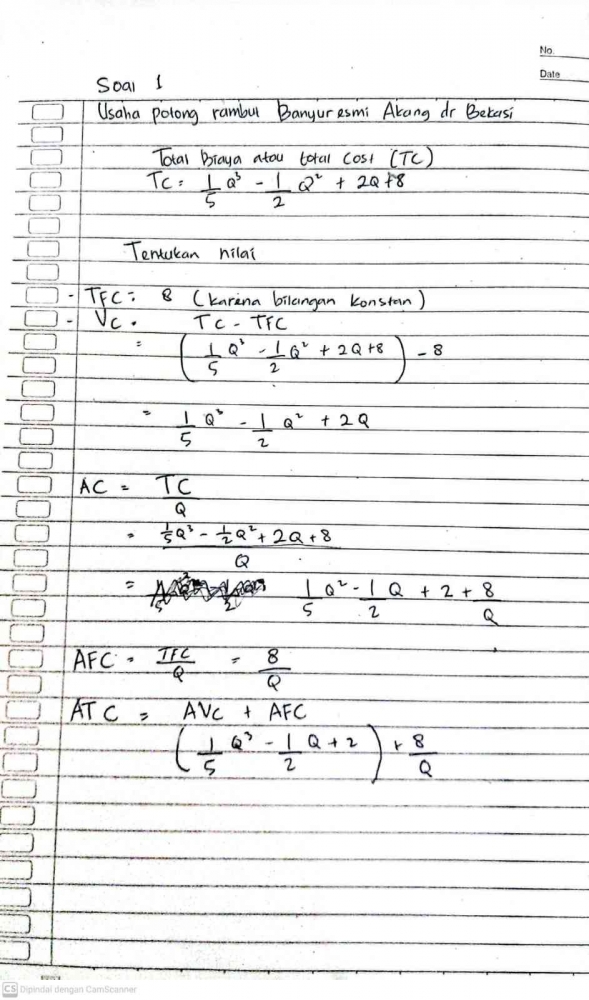 No.
Date
Soal 1
Usaha potong rambut Banyuresmi Akang dr Bekasi
Total Biaya atau total cost (TC)
TC = 1/5 Q³ - 1/2 Q² + 2Q + 8
Tentukan nilai
- TFC = 8 (karena bilangan konstan)
- VC = TC - TFC
= (1/5 Q³ - 1/2 Q² + 2Q + 8) - 8
= 1/5 Q³ - 1/2 Q² + 2Q
AC = TC/Q
= (1/5 Q³ - 1/2 Q² + 2Q + 8)/Q
= 1/5 Q² - 1/2 Q + 2 + 8/Q
AFC = TFC/Q = 8/Q
ATC = AVC + AFC
(1/5 Q³ - 1/2 Q + 2) + 8/Q
CS Dipindai dengan CamScanner